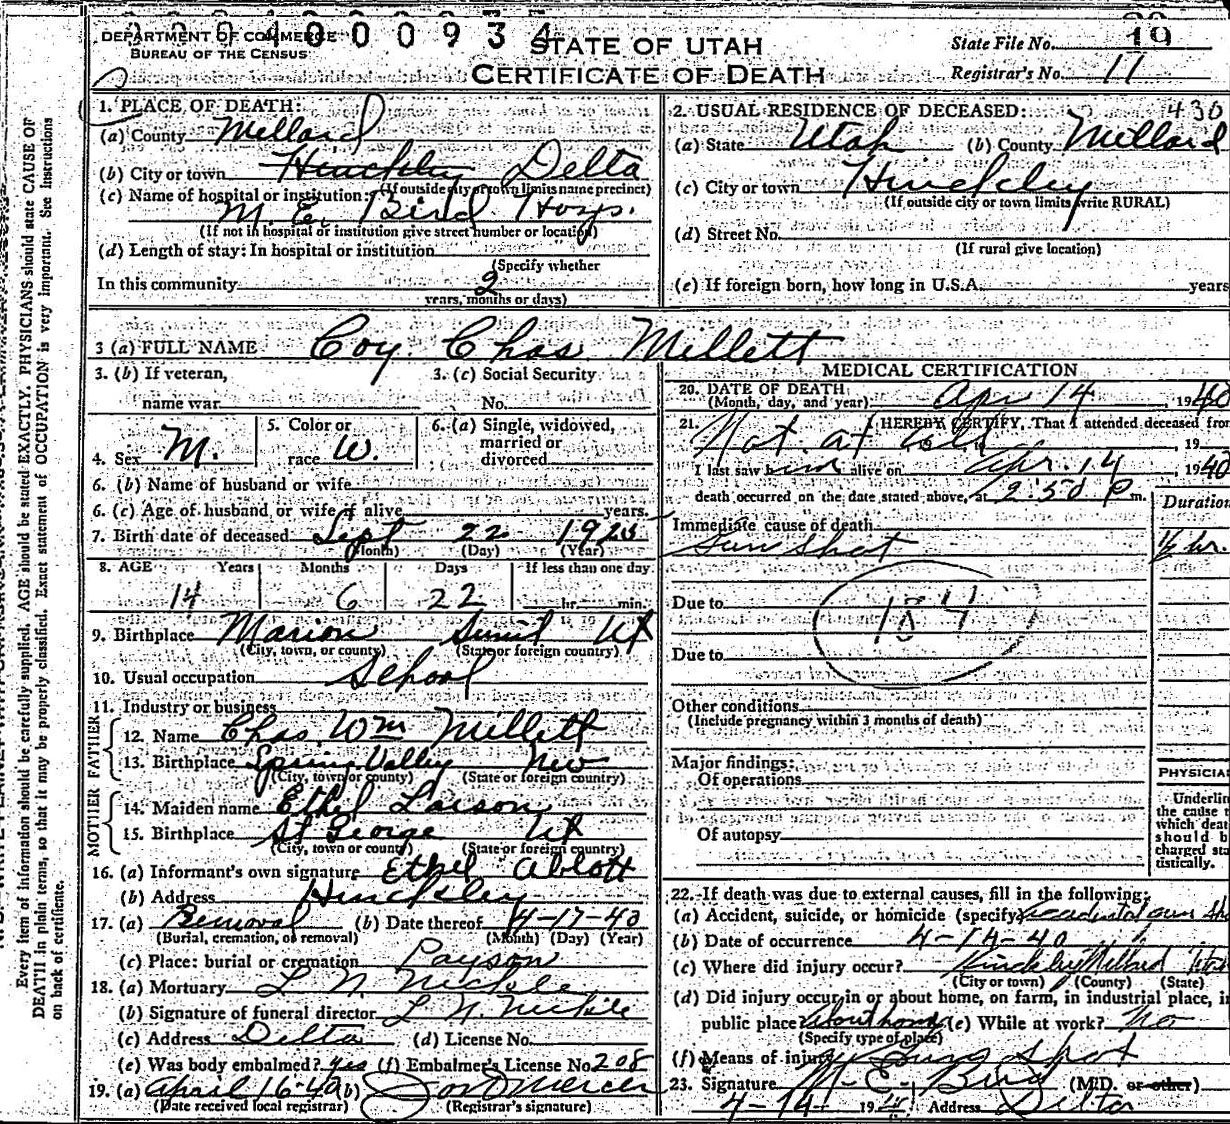 2 2 0 4 0 0 0 9 3 4
DEPARTMENT OF COMMERCE
BUREAU OF THE CENSUS
STATE OF UTAH
CERTIFICATE OF DEATH
State File No. 19
Registrar's No. 11
1. PLACE OF DEATH:
(a) County Millard
(b) City or town Hinckley Delta
(If outside city or town limits name precinct)
(c) Name of hospital or institution:
M. E. Bird Hosp.
(If not in hospital or institution give street number or location)
(d) Length of stay: In hospital or institution
(Specify whether
In this community 2
years, months or days)
2. USUAL RESIDENCE OF DECEASED: 430
(a) State Utah (b) County Millard
(c) City or town Hinckley
(If outside city or town limits write RURAL)
(d) Street No.
(If rural give location)
(e) If foreign born, how long in U.S.A. years
3 (a) FULL NAME Coy Chas. Millett
3. (b) If veteran,
name war
3. (c) Social Security
No.
4. Sex M.
5. Color or
race W.
6. (a) Single, widowed,
married or
divorced
6. (b) Name of husband or wife
6. (c) Age of husband or wife if alive years.
7. Birth date of deceased Sept 22 1925
(Month) (Day) (Year)
8. AGE Years Months Days If less than one day
14 6 22 hr. min.
9. Birthplace Marion Summit Ut
(City, town, or county) (State or foreign country)
10. Usual occupation School
11. Industry or business
FATHER
12. Name Chas. Wm Millett
13. Birthplace Spring Valley Nev
(City, town or county) (State or foreign country)
MOTHER
14. Maiden name Ethel Larson
15. Birthplace St George Ut
(City, town or county) (State or foreign country)
16. (a) Informant's own signature Ethel Abbott
(b) Address Hinckley
17. (a) Removal (b) Date thereof 4-17-40
(Burial, cremation, or removal) (Month) (Day) (Year)
(c) Place: burial or cremation Payson
18. (a) Mortuary L. N. Nickle
(b) Signature of funeral director L. N. Nickle
(c) Address Delta (d) License No.
(e) Was body embalmed? yes (f) Embalmer's License No. 208
19. (a) April 16-40 (b)
(Date received local registrar) (Registrar's signature)
MEDICAL CERTIFICATION
20. DATE OF DEATH
(Month, day, and year) Apr 14, 1940
21. I HEREBY CERTIFY, That I attended deceased from
Not at all 19
I last saw him alive on Apr. 14, 1940
death occurred on the date stated above, at 2:50 P m.
Duration
Immediate cause of death
Gun Shot ½ hr.
Due to
184
Due to
Other conditions
(Include pregnancy within 3 months of death)
Major findings:
Of operations
Of autopsy
PHYSICIA
Underlin
the cause
which deat
should b
charged sta
tistically.
22. If death was due to external causes, fill in the following:
(a) Accident, suicide, or homicide (specify) accidental gun sh
(b) Date of occurrence 4-14-40
(c) Where did injury occur? Hinckley Millard Utah
(City or town) (County) (State)
(d) Did injury occur in or about home, on farm, in industrial place, in
public place about home (e) While at work? No
(Specify type of place)
(f) Means of injury Gun Shot
23. Signature M. E. Bird (M.D. or other)
4-14- 19 Address Delta
Every item of information should be carefully supplied. AGE should be stated EXACTLY. PHYSICIANS should state CAUSE OF
DEATH in plain terms, so that it may be properly classified. Exact statement of OCCUPATION is very important. See Instructions
on back of certificate.